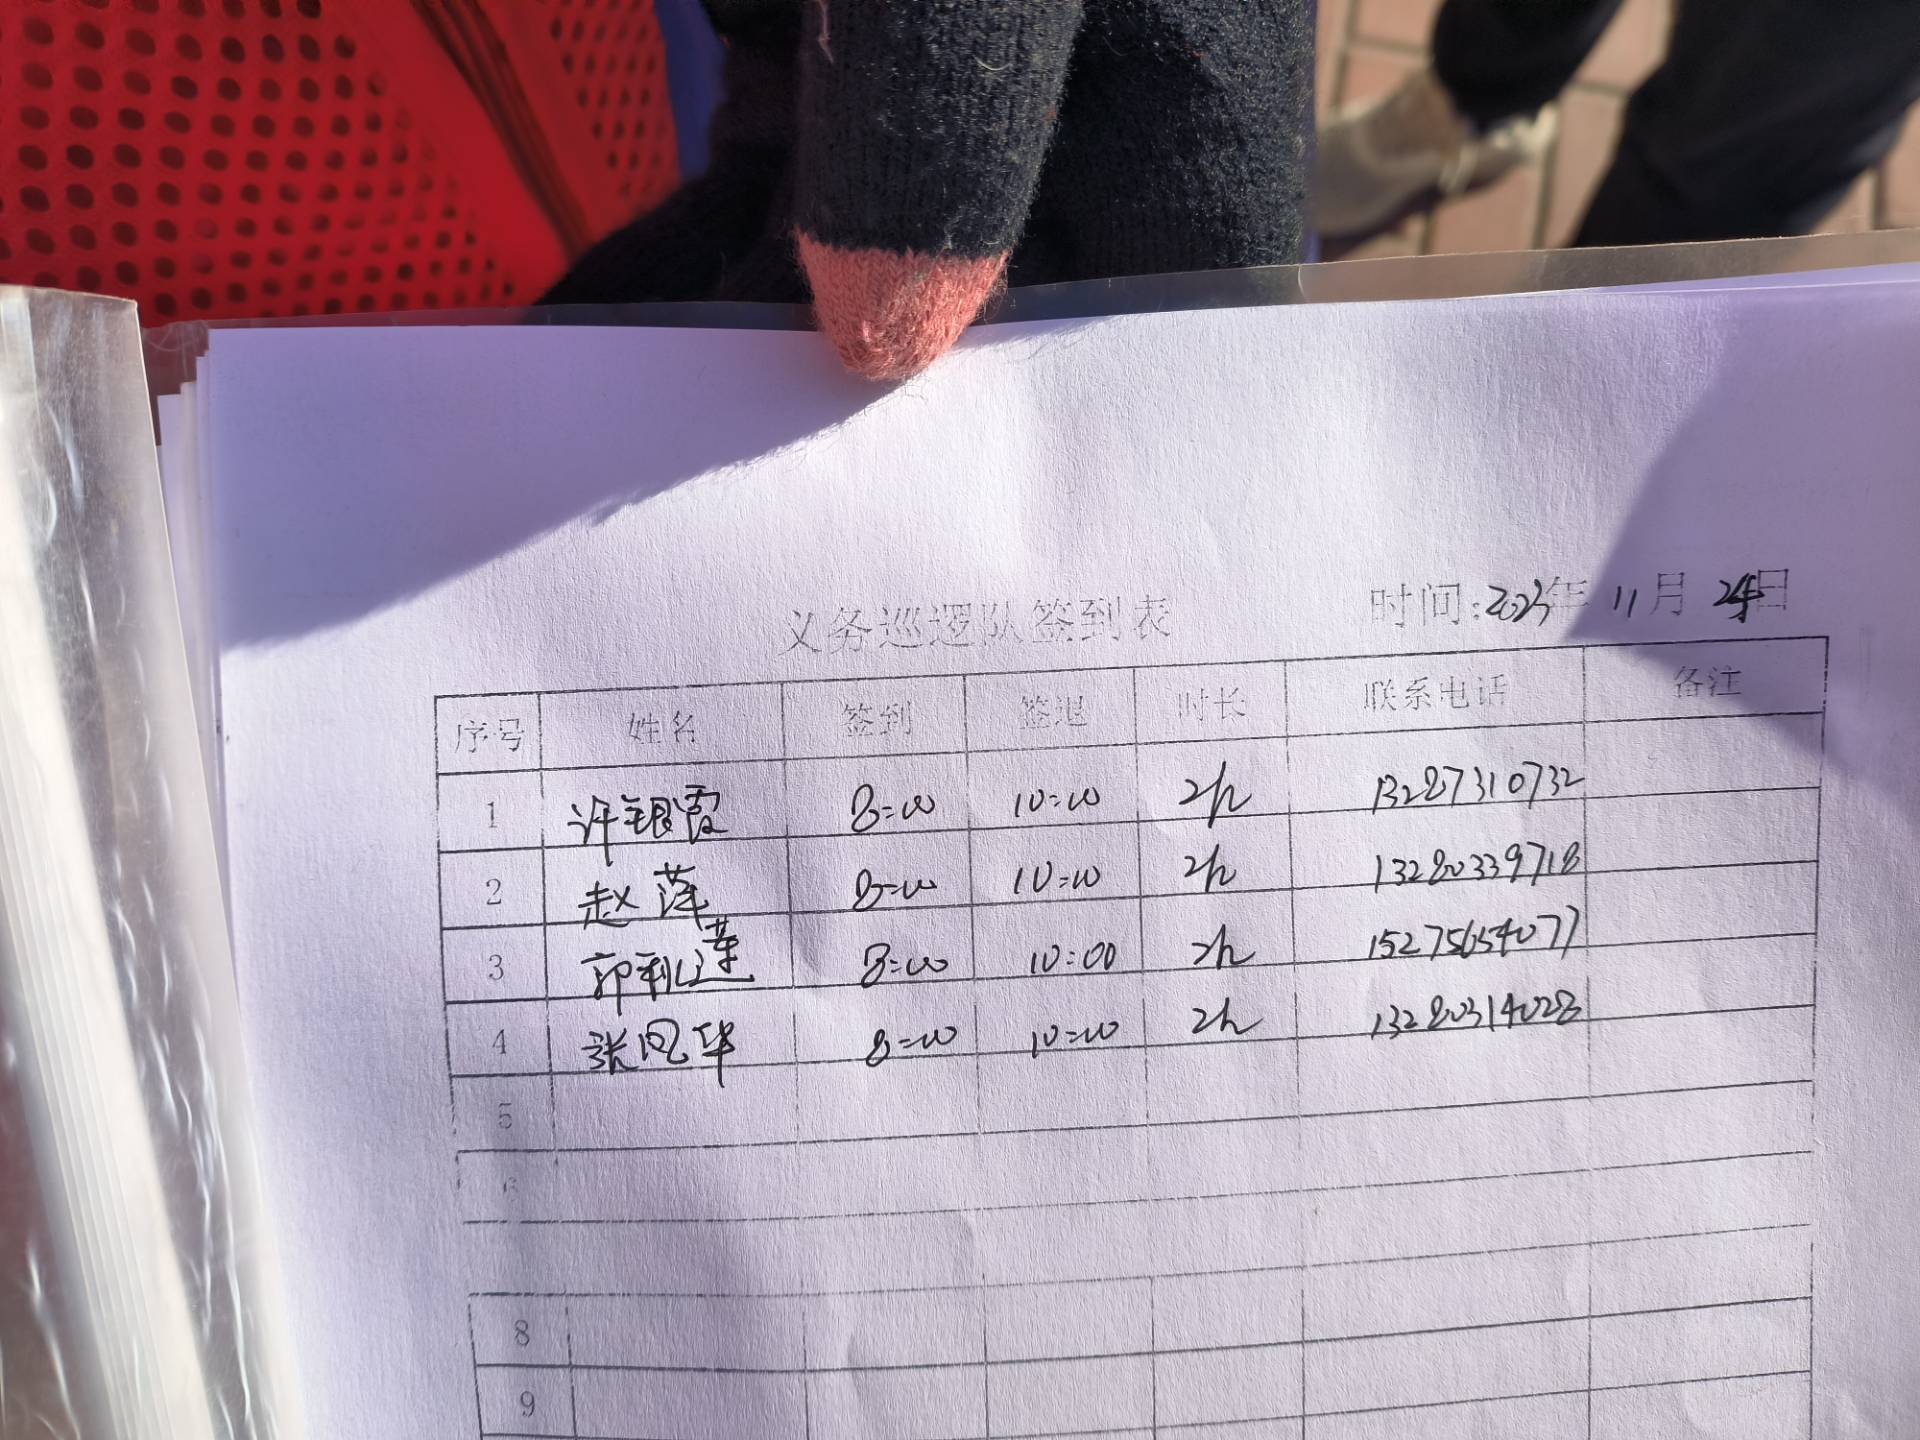 义务巡逻队签到表 时间:2023年 11月 24日
序号 姓名 签到 签退 时长 联系电话 备注
1 许银霞 8:00 10:00 2h 13287310732
2 赵萍 8:00 10:00 2h 13280339718
3 郭利莲 8:00 10:00 2h 15275654077
4 张风华 8:00 10:00 2h 13280314028
5
6
8
9